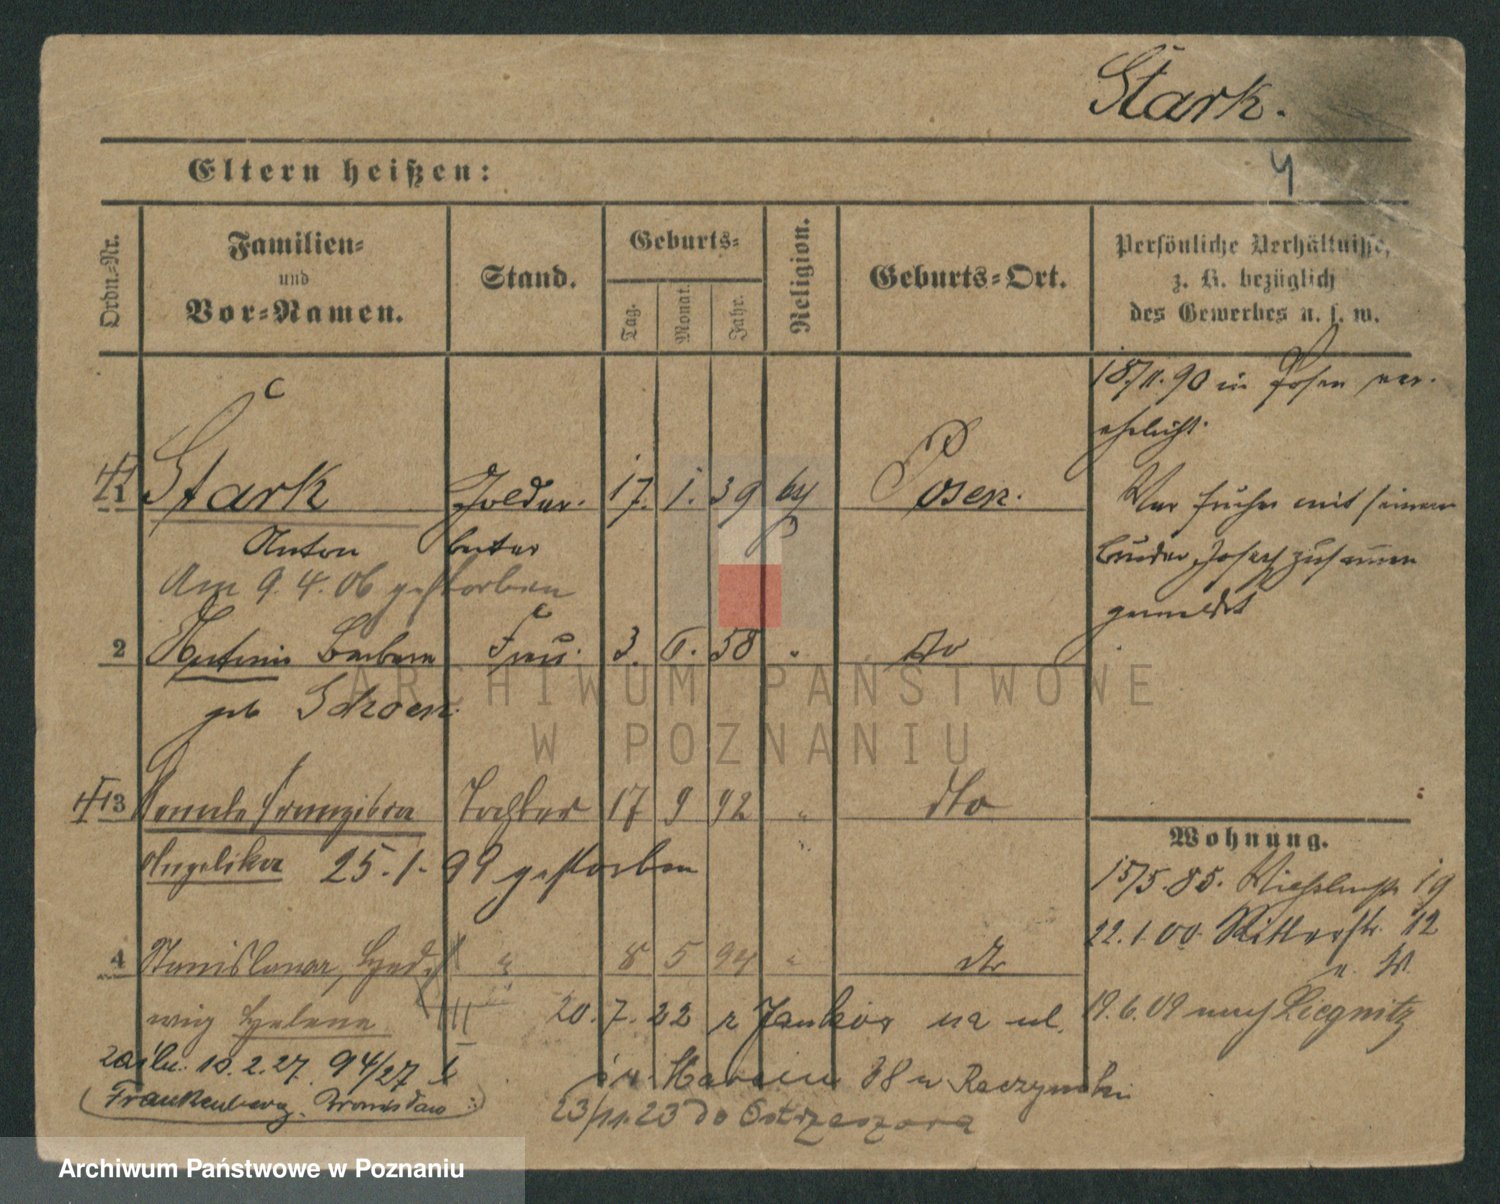 Stark.
4
Eltern heißen:
Ordn.-Nr.
Familien-
und
Vor-Namen.
Stand.
Geburts-
Tag.
Monat.
Jahr.
Religion.
Geburts-Ort.
Persönliche Verhältnisse,
z. B. bezüglich
des Gewerbes u. s. w.
18/11.90 in Posen ver-
ehelicht.
1 Stark 17. 1. 39 Posen.
Anton
Am 9.4.06 gestorben
War früher mit seinem
Bruder Josef zusammen
gemeldet
2 Barbara Frau. 3. 58 " dto
geb Schoen.
3 Tochter 17 9 92 " dto
Angelika 25.1.99 gestorben
Wohnung.
15/5.85. 19
22.1.00. Ritterstr. 12
4 Stanislawa, Hed- " 8 5 94 " dto
wig Helena
19.6.09 nach Liegnitz
20.7.22 z Jankow na ul.
Marcin 38 u Raczynski
10.2.27. 94/27
(Frankenberg, Bronisław)
23/11.23 do Ostrzeszowa
ARCHIWUM PAŃSTWOWE
W POZNANIU
Archiwum Państwowe w Poznaniu